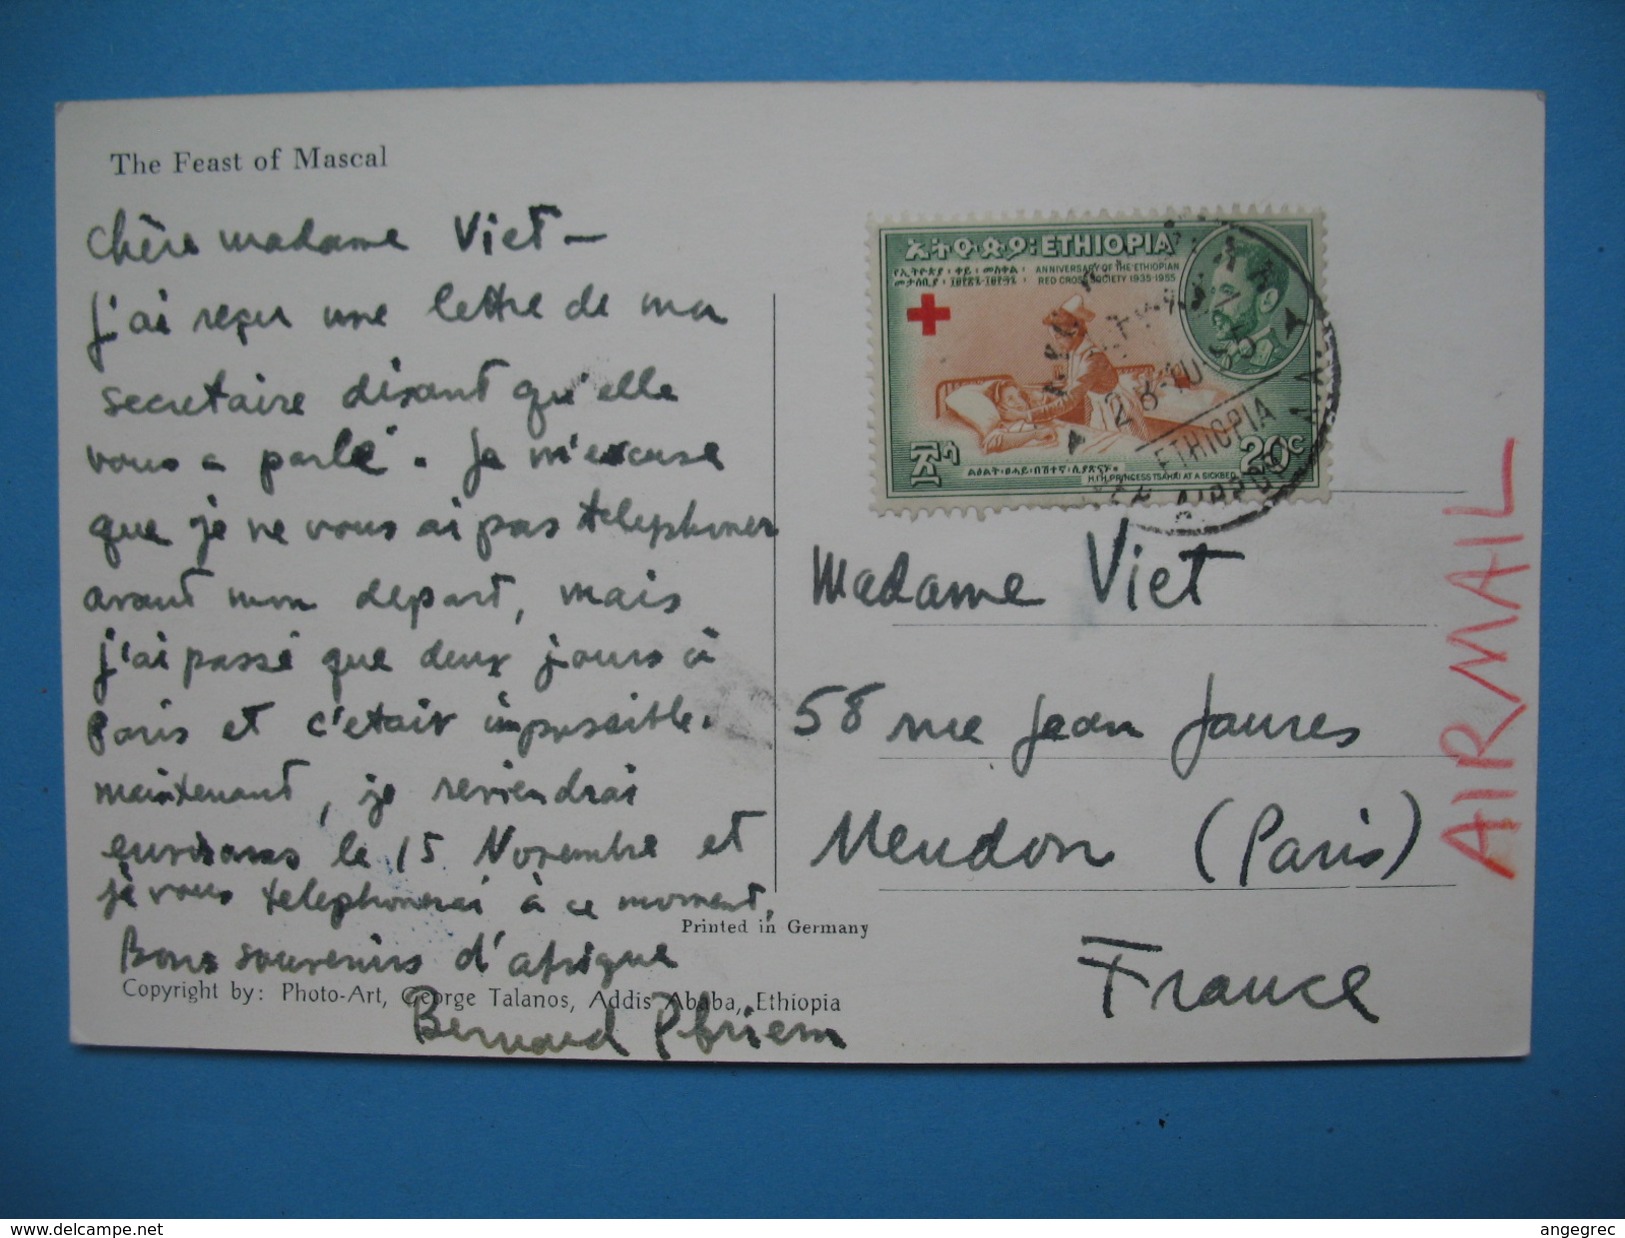 The Feast of Mascal
Chère madame Viet —
J'ai reçu une lettre de ma
secretaire disant qu'elle
vous a parlé. Je m'excuse
que je ne vous ai pas telephoner
avant mon depart, mais
j'ai passé que deux jours à
Paris et c'etait impossible.
maintenant, je reviendrai
environs le 15 Novembre et
je vous telephonerai à ce moment,
Bons souvenirs d'afrique
Bernard
Copyright by: Photo-Art, George Talanos, Addis Ababa, Ethiopia
Printed in Germany
ኢትዮጵያ፡ETHIOPIA
የኢትዮጵያ፡ቀይ፡መስቀል፡
ANNIVERSARY OF THE ETHIOPIAN
RED CROSS SOCIETY 1935-1955
20c
H.I.H. PRINCESS TSAHAI AT A SICKBED
ETHIOPIA
Madame Viet
58 rue Jean Jaures
Meudon (Paris)
France
AIRMAIL
www.delcampe.net
angegrec